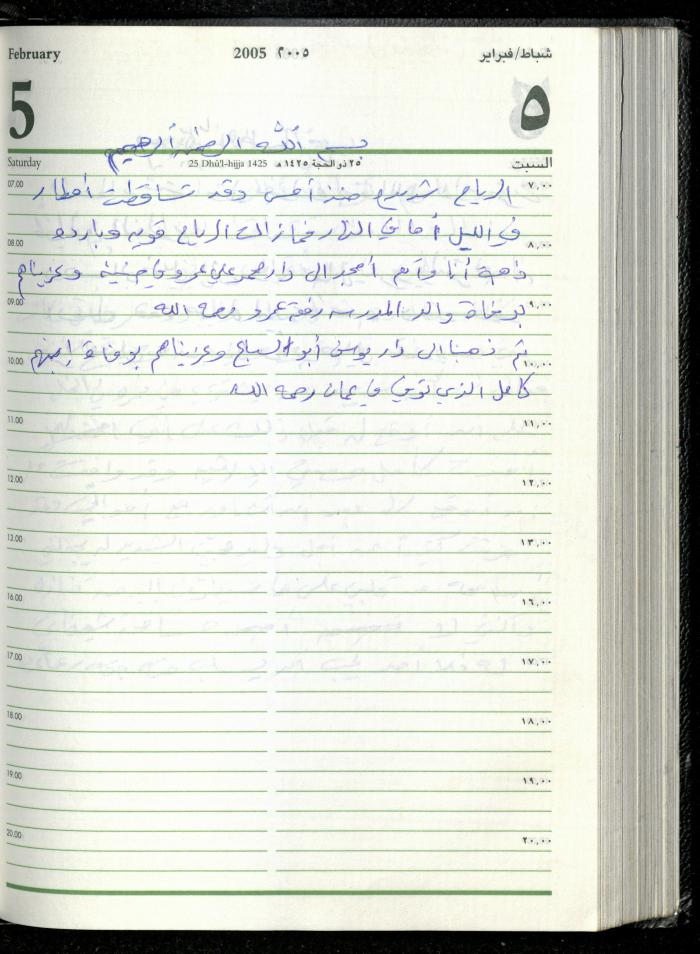 February 2005 ٢٠٠٥ شباط/فبراير
5 ٥
بسم الله الرحمن الرحيم
Saturday 25 Dhū'l-hijja 1425 ٢٥ ذو الحجة ١٤٢٥ هـ السبت
07.00 الرياح شديدة منذ أمس وقد تساقطت أمطار ٧,٠٠
في الليل أما في النهار فمازالت الرياح قوية وباردة
08.00 ٨,٠٠
ذهبت أنا وأم أمجد الى دار محمد علي عمرو في وعزيناهم
09.00 بوفاة والد المدرسه رفقه عمرو رحمه الله ٩,٠٠
ثم ذهبنا الى دار يوسف أبو السباع وعزيناهم بوفاة إبنهم
10.00 ١٠,٠٠
كامل الذي توفي في عمان رحمه الله
11.00 ١١,٠٠
12.00 ١٢,٠٠
13.00 ١٣,٠٠
16.00 ١٦,٠٠
17.00 ١٧,٠٠
18.00 ١٨,٠٠
19.00 ١٩,٠٠
20.00 ٢٠,٠٠